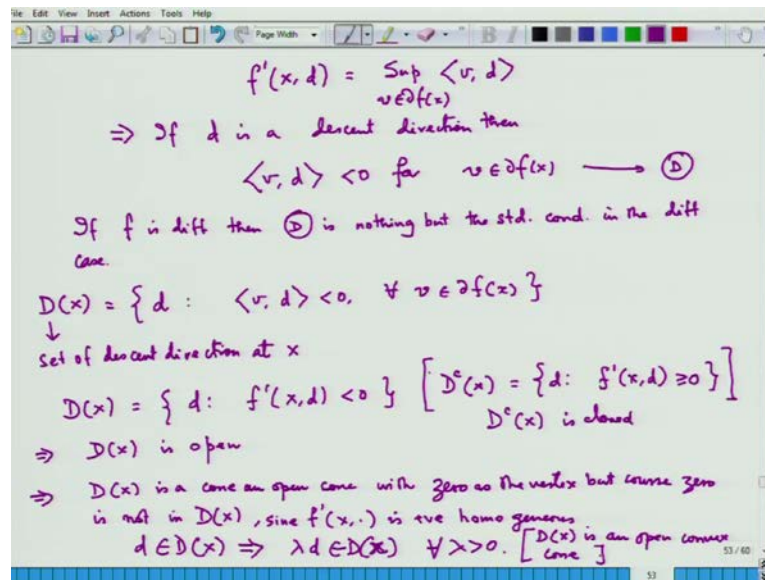 File Edit View Insert Actions Tools Help
Page Width B I
f'(x, d) = Sup <v, d>
v∈∂f(x)
⇒ If d is a descent direction then
<v, d> < 0 for v ∈ ∂f(x) ⟶ Ⓓ
If f is diff then Ⓓ is nothing but the std. cond. in the diff
case.
D(x) = { d : <v, d> < 0, ∀ v ∈ ∂f(x) }
↓
set of descent direction at x
D(x) = { d : f'(x, d) < 0 } [ Dᶜ(x) = { d : f'(x, d) ≥ 0 } ]
Dᶜ(x) is closed
⇒ D(x) is open
⇒ D(x) is a cone an open cone with zero as the vertex but course zero
is not in D(x), sine f'(x, .) is +ve homogeneous
d ∈ D(x) ⇒ λd ∈ D(x) ∀ λ > 0. [ D(x) is an open convex
cone ]
53 / 60
53